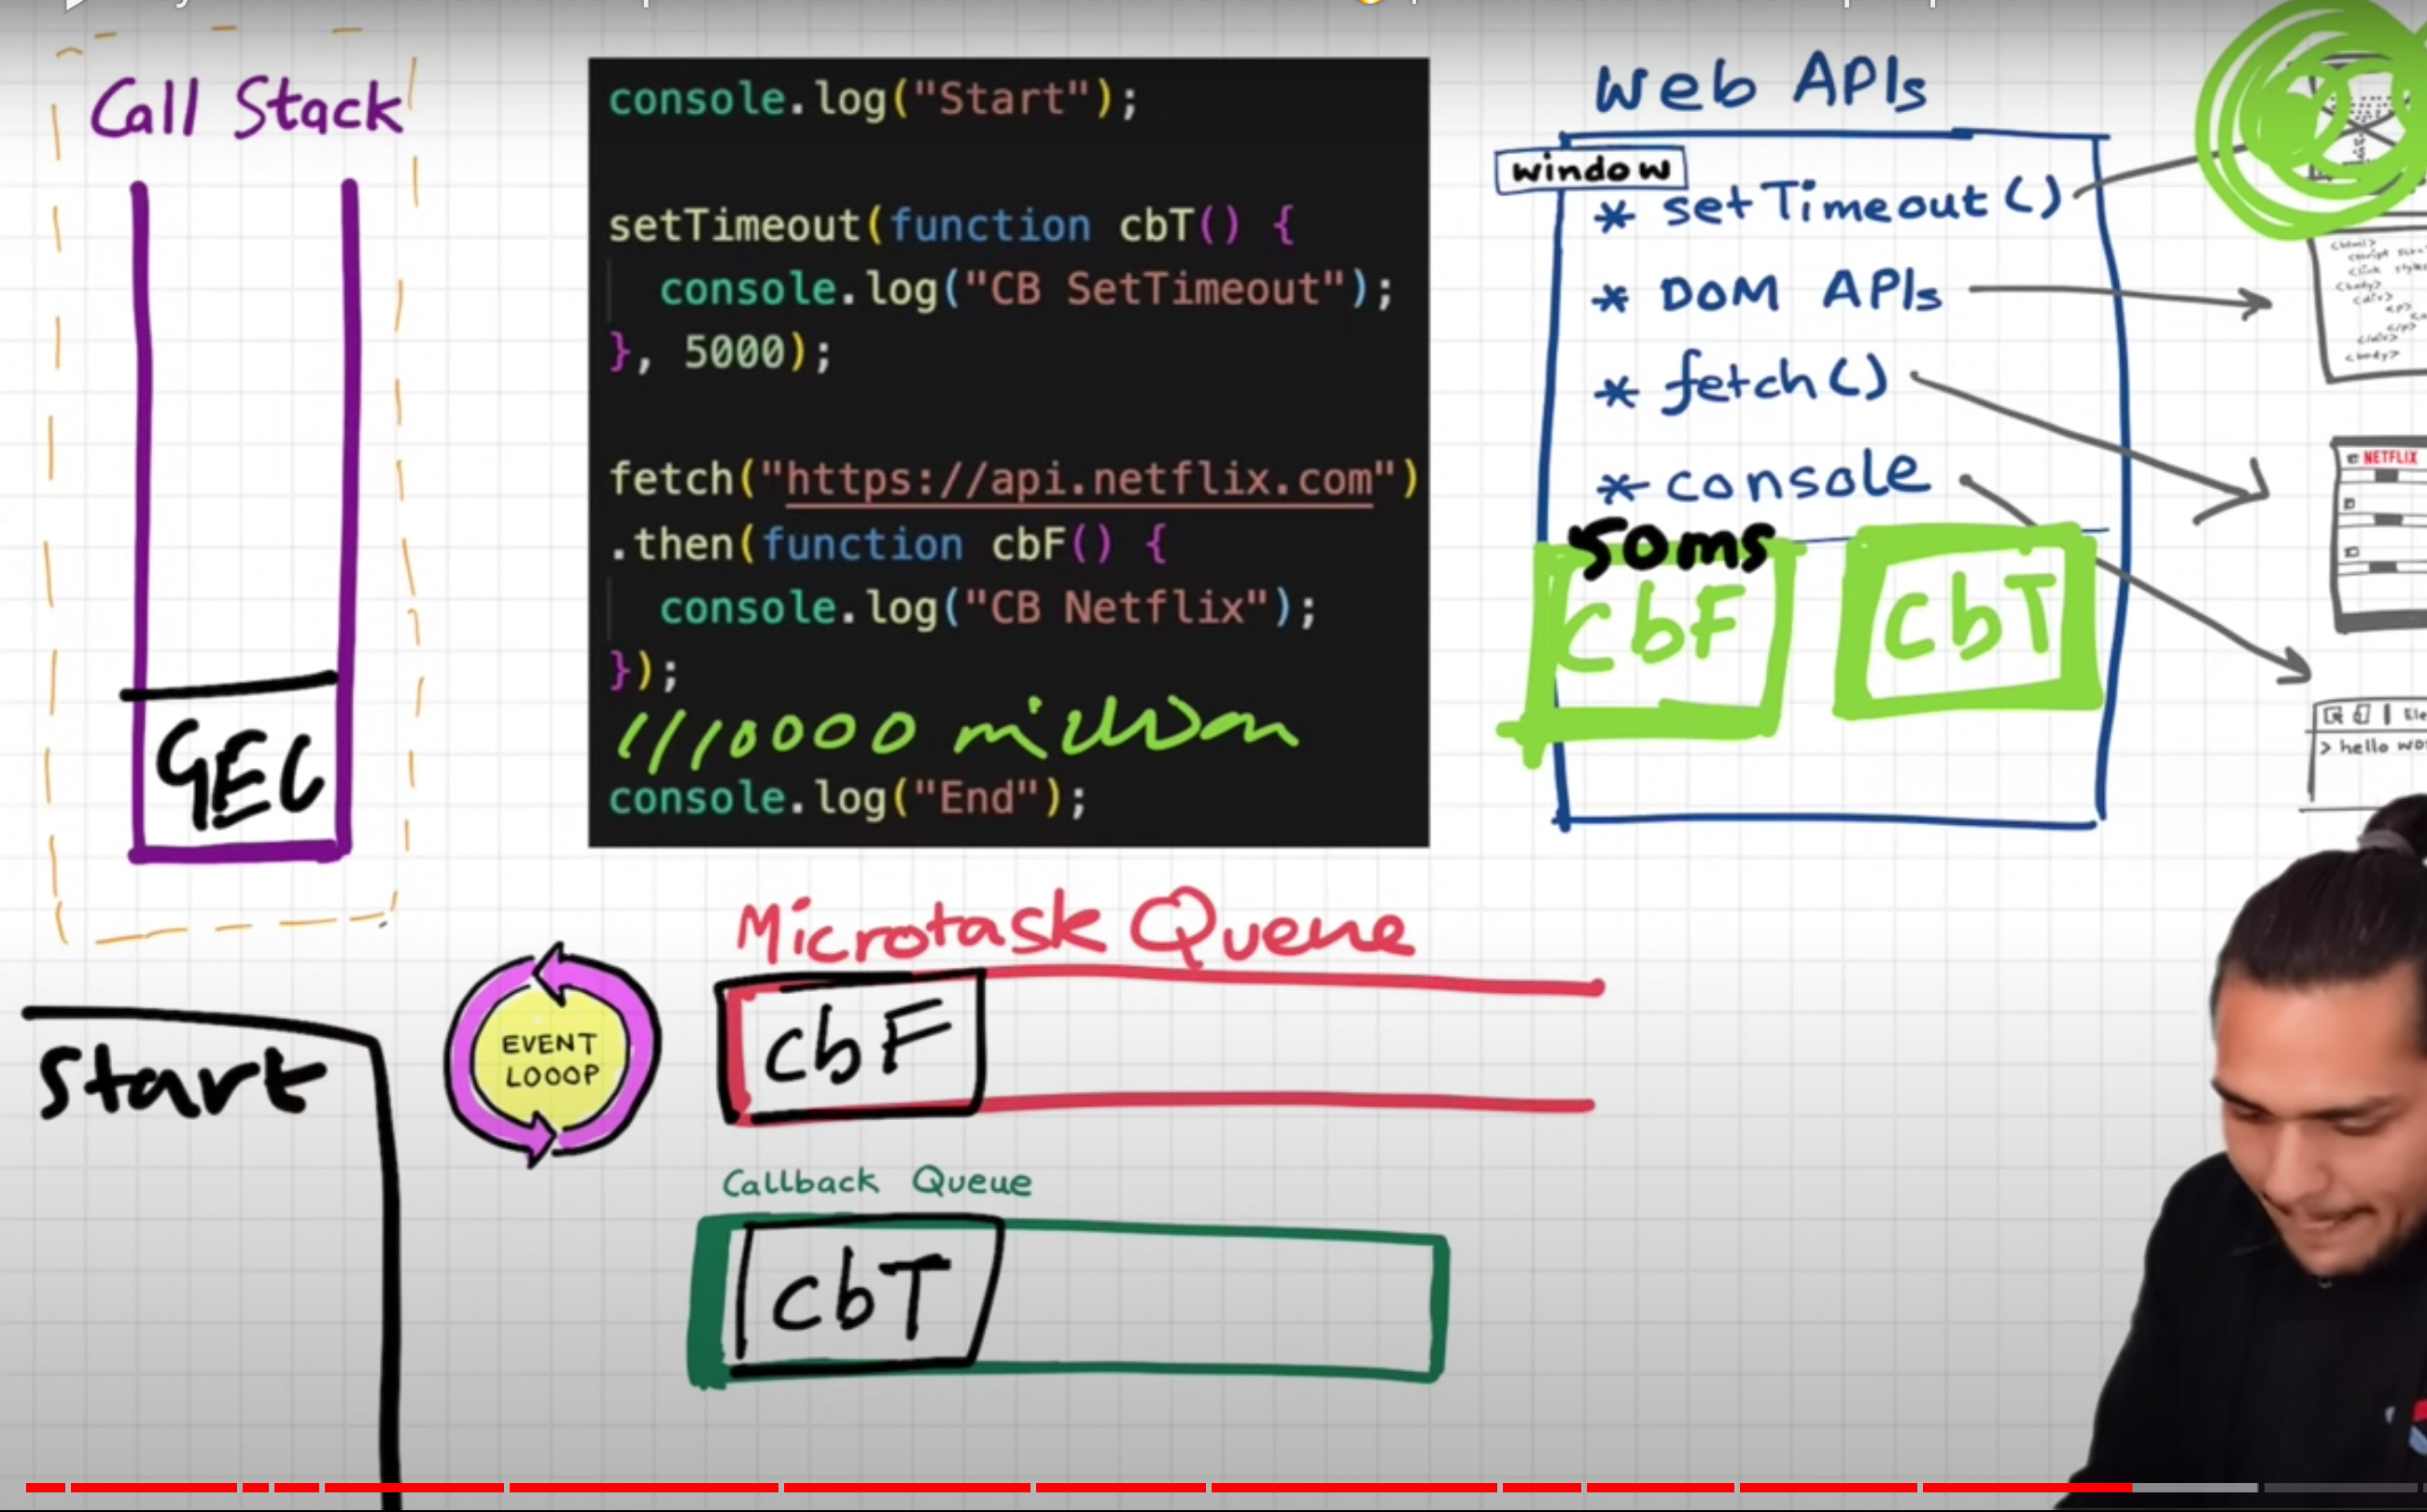 Call Stack
GEC
Start
console.log("Start");
setTimeout(function cbT() {
console.log("CB SetTimeout");
}, 5000);
fetch("https://api.netflix.com")
.then(function cbF() {
console.log("CB Netflix");
});
// 10000 million
console.log("End");
Web APIs
window
* setTimeout()
* DOM APIs
* fetch()
* console
50ms
CbF
CbT
NETFLIX
> hello
EVENT
LOOOP
Microtask Queue
cbF
Callback Queue
cbT